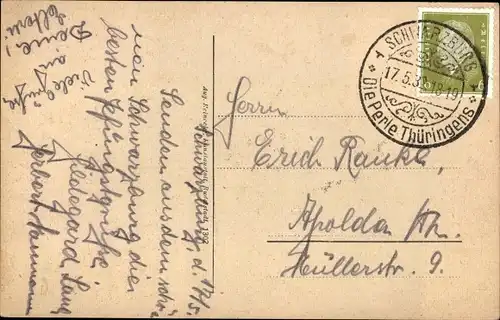 Schwarzburg, d. 17./5.
Senden aus dem schö-
nen Schwarzburg die
besten Pfingstgrüße
Hildegard Lang
Herbert
Viele Grüße
an
Deine
Eltern!
SCHWARZBURG
17.5.3 18-19
Die Perle Thüringens
Herrn
Erich Ranke,
Apolda Th.
Müllerstr. 9.